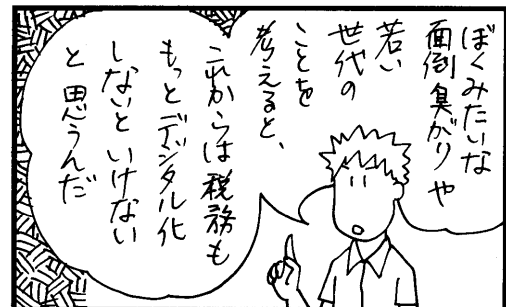 ぼくみたいな
面倒臭がりや
若い
世代の
ことを
考えると、
これからは税務も
もっとデジタル化
しないといけない
と思うんだ